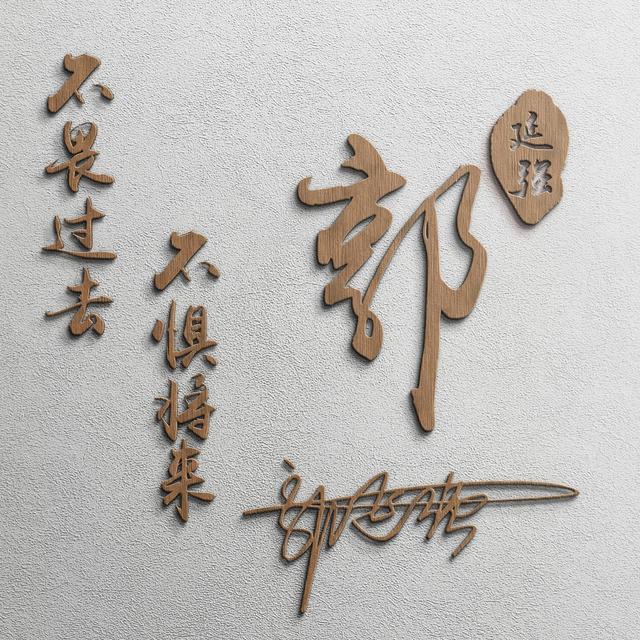 不畏过去
不惧将来
郭
延强